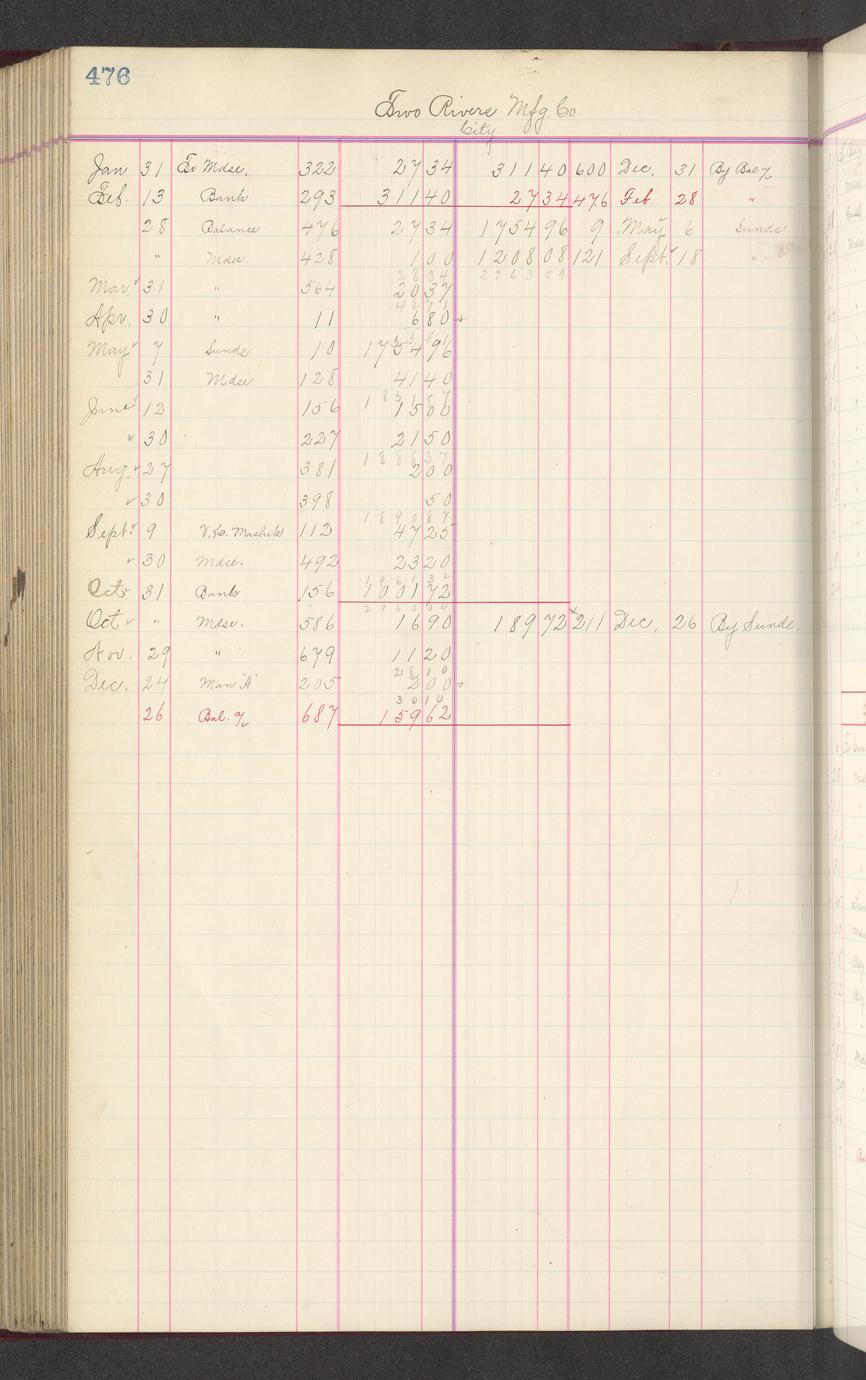 476
Two Rivers Mfg. Co.
City
Jan 31 To Mdse. 322 27 34 311 40 600 Dec. 31 By Bal %
Feb. 13 Bank 293 311 40 27 34 476 Feb. 28 "
28 Balance 476 27 34 1754 96 9 May 6 Sunds
" Mdse. 428 1 00 1208 08 121 Sept. 18 "
28 34 2963 04
Mar. 31 " 564 20 37
48 71
Apr. 30 " 11 6 80
May 7 Sunds 10 1754 96
31 Mdse 128 41 40
1851 87
June 12 156 15 00
30 227 21 50
1888 37
Aug. 27 381 2 00
30 398 50
1890 87
Sept. 9 112 47 25
30 Mdse. 492 23 20
1961 32
Oct. 31 Bank 156 1001 72
2963 04
Oct " Mdse. 586 16 90 189 72 211 Dec. 26 By Sunds.
Nov. 29 " 679 11 20
28 10
Dec. 24 Man "A" 205 2 00
30 10
26 Bal. % 687 159 62